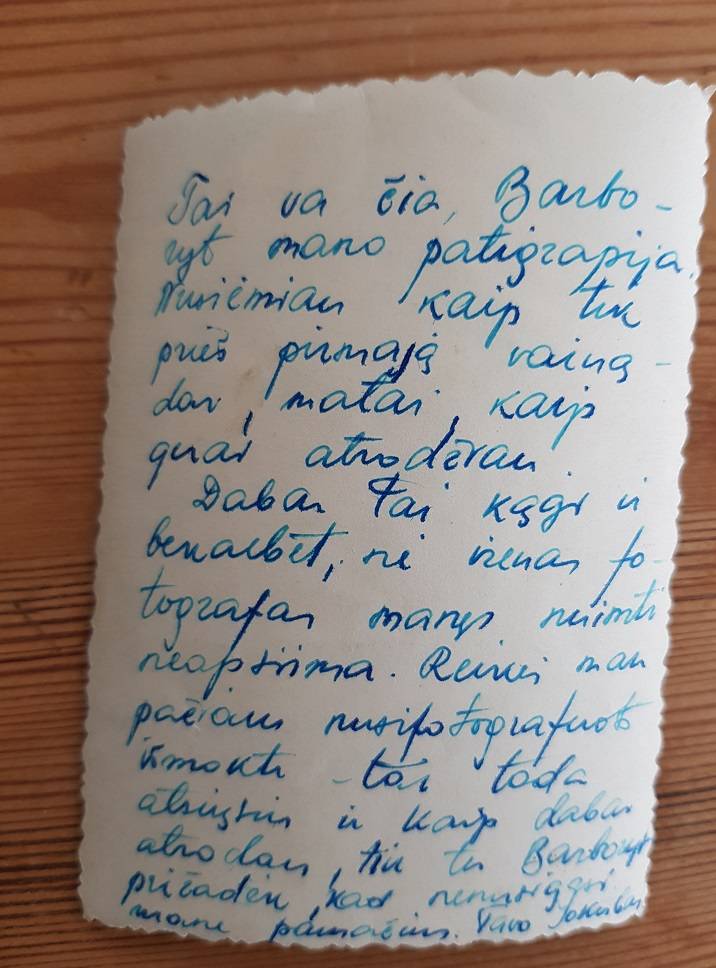 Tai va čia, Barbo-
ryt mano patigrapija.
Nusiėmiau kaip tik
prieš pirmąją vainą-
dar, matai, kaip
gerai atrodžiau.
Dabar tai kągi ir
bekalbėt, nė vienas fo-
tografas manęs nuimti
neapsiima. Reikės man
pačiam nusifotografuot
išmokti - tai tada
atsiųsiu ir kaip dabar
atrodau, tik tu Barboryt
pričadėk, kad nenusigąsi
mane pamačius. Tavo Jokūbas